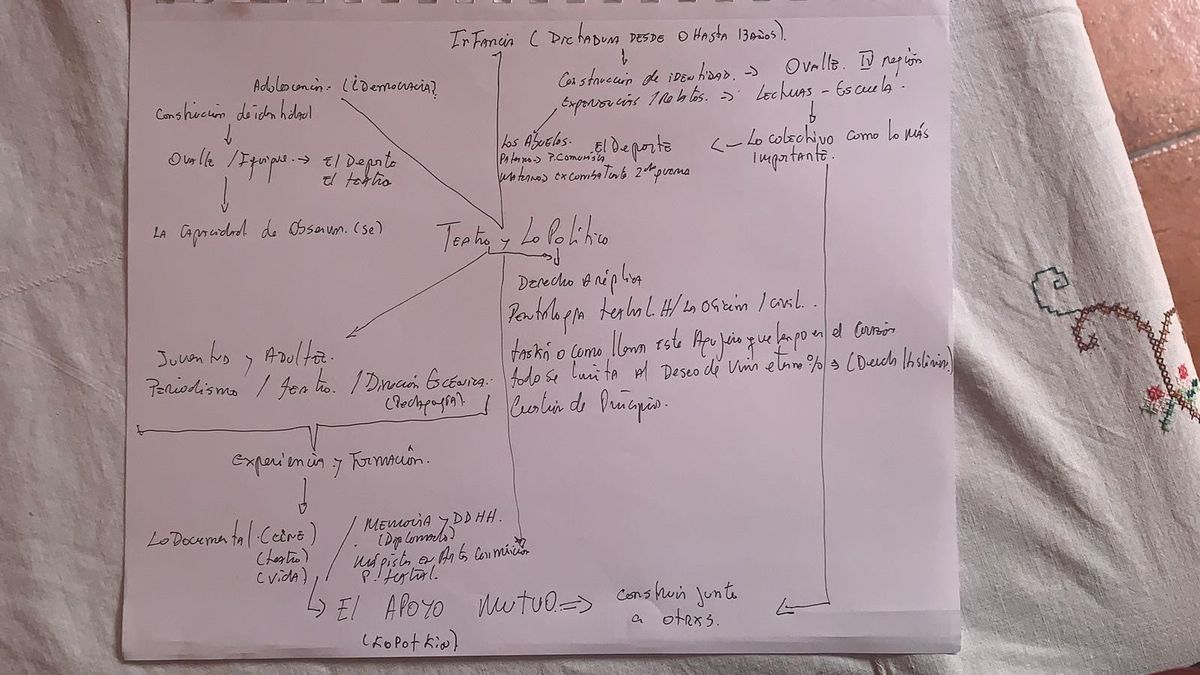 Infancia (Dictadura desde 0 hasta 13 años).
Construcción de identidad. → Ovalle. IV región
Experiencias / Relatos. → Lecturas - Escuela.
Los Abuelos.
Paterno → P. Comunista
Materno → excombatiente 2da guerra
El Deporte
← Lo colectivo como lo más
importante.
Adolescencia. (¿Democracia?
Construcción de identidad
Ovalle / Iquique. → El Deporte
El teatro
La Capacidad de Observar. (se)
Teatro y Lo Político
Derecho a réplica
Pentalogía teatral. H/ La Oficina / civil..
o como llena este Agujero que tengo en el corazón
todo se limita al Deseo de vivir eternamente → (Deuda Histórica)
Cuestión de Principio.
Juventud y Adultez.
Periodismo / teatro. / Dirección Escénica.
(Pedagogía).
Experiencia y Formación.
Lo Documental (Cine)
(teatro)
(vida)
/ Memoria y DDHH.
(Diplomado)
Magister en Artes
P. teatral.
El APOYO MUTUO. ⇒ construir junto
a otrxs.
(Kopotkin)